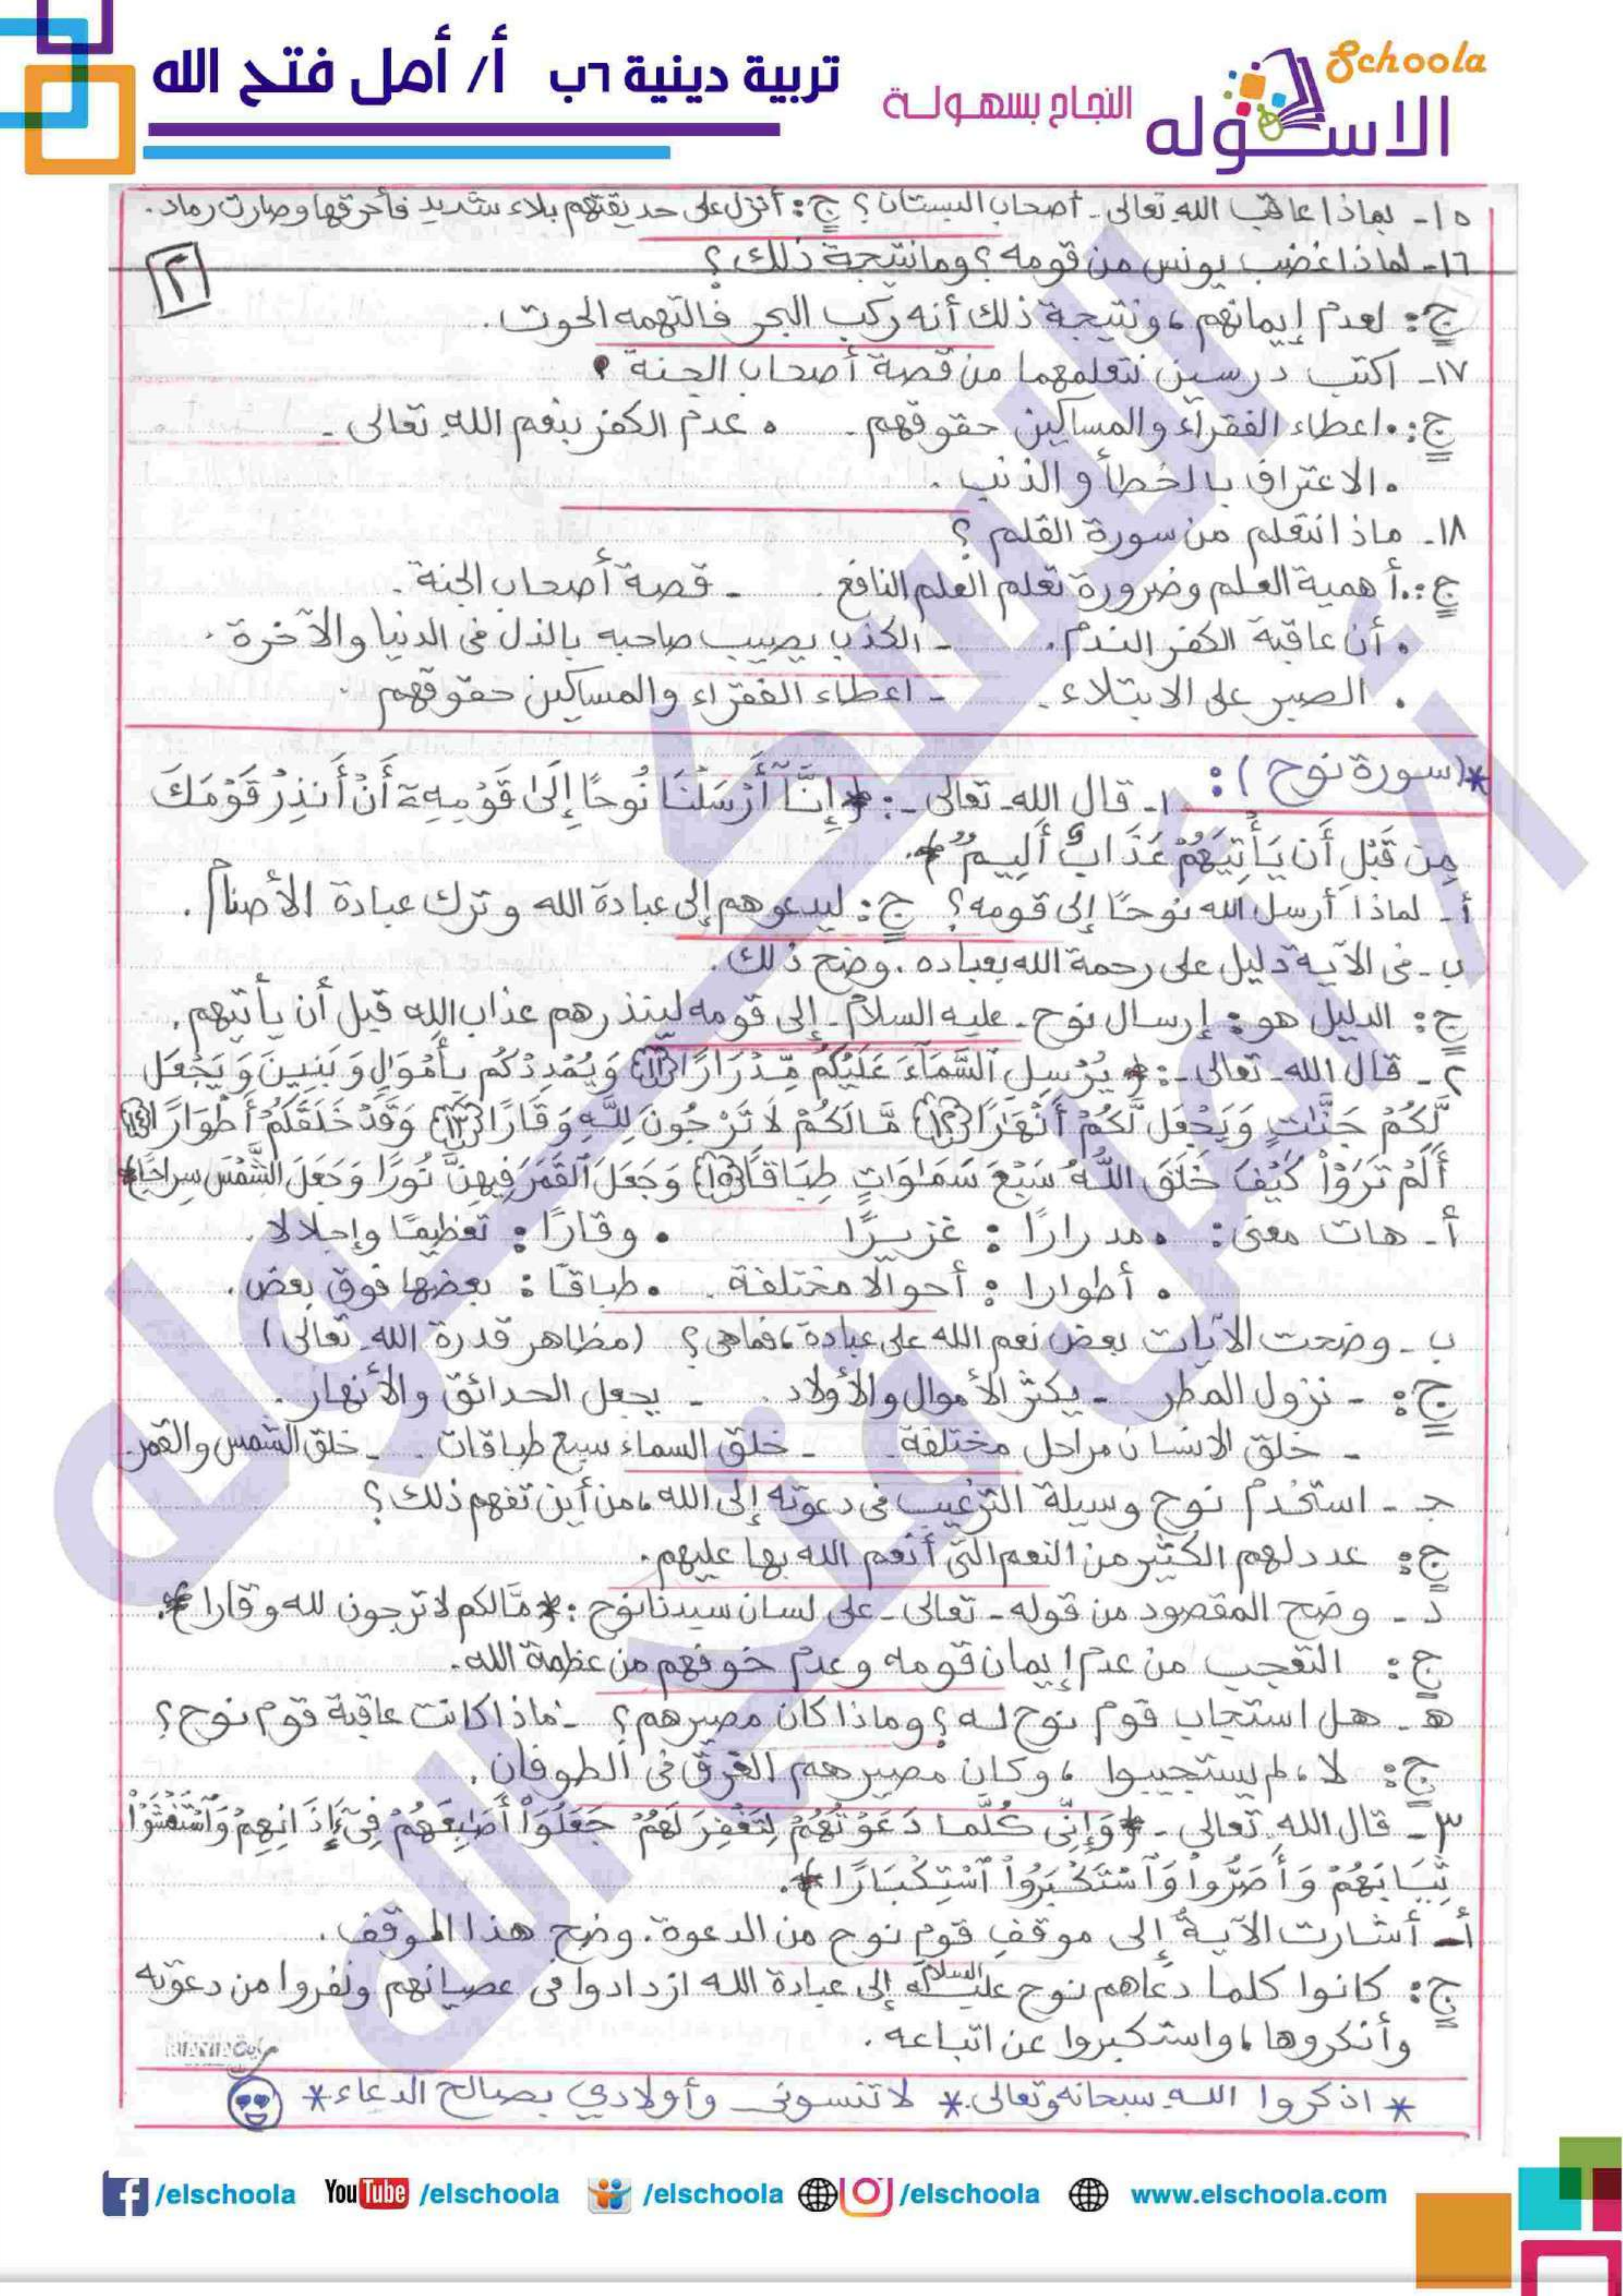 تربية دينية ٦ب أ/ أمل فتح الله
Schoola
الاسكوله
النجاح بسهولة
١٥- بماذا عاقب الله تعالى - أصحاب البستان؟ ج: أنزل على حديقتهم بلاء شديد فأحرقها وصارت رماد.
٢
١٦- لماذا غضب يونس من قومه؟ وما نتيجة ذلك؟
ج: لعدم إيمانهم، ونتيجة ذلك أنه ركب البحر فالتهمه الحوت.
١٧- اكتب درسين نتعلمهما من قصة أصحاب الجنة؟
ج: • اعطاء الفقراء والمساكين حقوقهم. • عدم الكفر بنعم الله تعالى.
• الاعتراف بالخطأ والذنب.
١٨- ماذا نتعلم من سورة القلم؟
ج: • أهمية العلم وضرورة تعلم العلم النافع. - قصة أصحاب الجنة.
• أن عاقبة الكفر الندم. - الكذب يصيب صاحبه بالذل فى الدنيا والآخرة.
• الصبر على الابتلاء. - اعطاء الفقراء والمساكين حقوقهم.
*(سورة نوح): ١- قال الله - تعالى -: ﴿إِنَّآ أَرْسَلْنَا نُوحًا إِلَىٰ قَوْمِهِۦٓ أَنْ أَنذِرْ قَوْمَكَ
مِن قَبْلِ أَن يَأْتِيَهُمْ عَذَابٌ أَلِيمٌ﴾.
أ- لماذا أرسل الله نوحًا إلى قومه؟ ج: ليدعوهم إلى عبادة الله وترك عبادة الأصنام.
ب- فى الآية دليل على رحمة الله بعباده. وضح ذلك.
ج: الدليل هو: إرسال نوح - عليه السلام - إلى قومه لينذرهم عذاب الله قبل أن يأتيهم.
٢- قال الله - تعالى -: ﴿يُرْسِلِ ٱلسَّمَآءَ عَلَيْكُم مِّدْرَارًا ﴿١١﴾ وَيُمْدِدْكُم بِأَمْوَٰلٍ وَبَنِينَ وَيَجْعَل
لَّكُمْ جَنَّٰتٍ وَيَجْعَل لَّكُمْ أَنْهَٰرًا ﴿١٢﴾ مَّا لَكُمْ لَا تَرْجُونَ لِلَّهِ وَقَارًا ﴿١٣﴾ وَقَدْ خَلَقَكُمْ أَطْوَارًا ﴿١٤﴾
أَلَمْ تَرَوْا۟ كَيْفَ خَلَقَ ٱللَّهُ سَبْعَ سَمَٰوَٰتٍ طِبَاقًا ﴿١٥﴾ وَجَعَلَ ٱلْقَمَرَ فِيهِنَّ نُورًا وَجَعَلَ الشَّمْسَ سِرَاجًا﴾
أ- هات معنى: • مدرارًا: غزيرًا • وقارًا: تعظيمًا وإجلالا.
• أطوارا: أحوالا مختلفة. • طباقًا: بعضها فوق بعض.
ب- وضحت الآيات بعض نعم الله على عبادة، فما هى؟ (مظاهر قدرة الله - تعالى)
ج: - نزول المطر - يكثر الأموال والأولاد. - يجعل الحدائق والأنهار.
- خلق الانسان مراحل مختلفة. - خلق السماء سبع طباقات. - خلق الشمس والقمر.
جـ- استخدم نوح وسيلة الترغيب فى دعوته إلى الله، من أين تفهم ذلك؟
ج: عدد لهم الكثير من النعم التى أنعم الله بها عليهم.
د- وضح المقصود من قوله - تعالى - على لسان سيدنا نوح: ﴿مَّالكم لا ترجون لله وقارا﴾.
ج: التعجب من عدم إيمان قومه وعدم خوفهم من عظمة الله.
هـ- هل استجاب قوم نوح له؟ وماذا كان مصيرهم؟ - ماذا كانت عاقبة قوم نوح؟
ج: لا، لم يستجيبوا، وكان مصيرهم الغرق فى الطوفان.
٣- قال الله - تعالى - ﴿وَإِنِّى كُلَّمَا دَعَوْتُهُمْ لِتَغْفِرَ لَهُمْ جَعَلُوٓا۟ أَصَٰبِعَهُمْ فِىٓ ءَاذَانِهِمْ وَٱسْتَغْشَوْا۟
ثِيَابَهُمْ وَأَصَرُّوا۟ وَٱسْتَكْبَرُوا۟ ٱسْتِكْبَارًا﴾.
أ- أشارت الآية إلى موقف قوم نوح من الدعوة. وضح هذا الموقف.
ج: كانوا كلما دعاهم نوح عليه السلام إلى عبادة الله ازدادوا فى عصيانهم ونفروا من دعوته
وأنكروها، واستكبروا عن اتباعه.
* اذكروا الله سبحانه وتعالى.* لا تنسونى وأولادي بصالح الدعاء *
/elschoola YouTube /elschoola /elschoola /elschoola www.elschoola.com
الاسكوله
أ/ أمل فتح الله